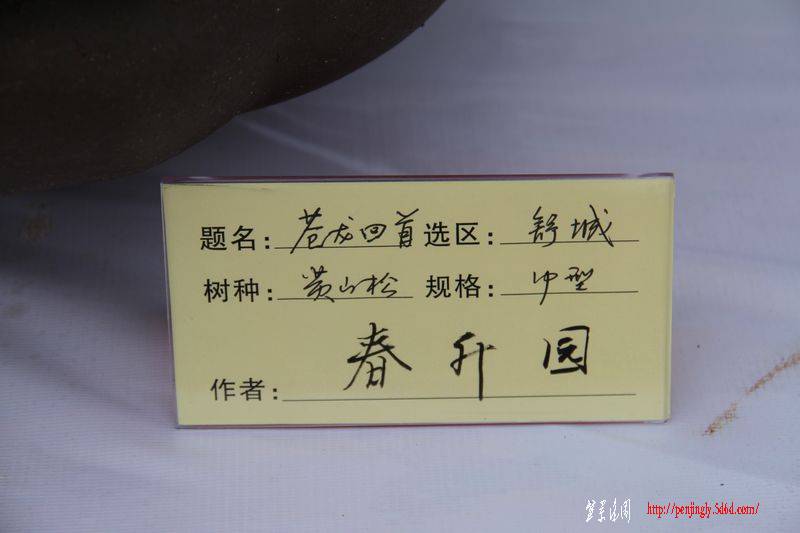 题名: 苍龙回首 选区: 舒城
树种: 黄山松 规格: 中型
作者: 春升园
http://penjingly.5d6d.com/